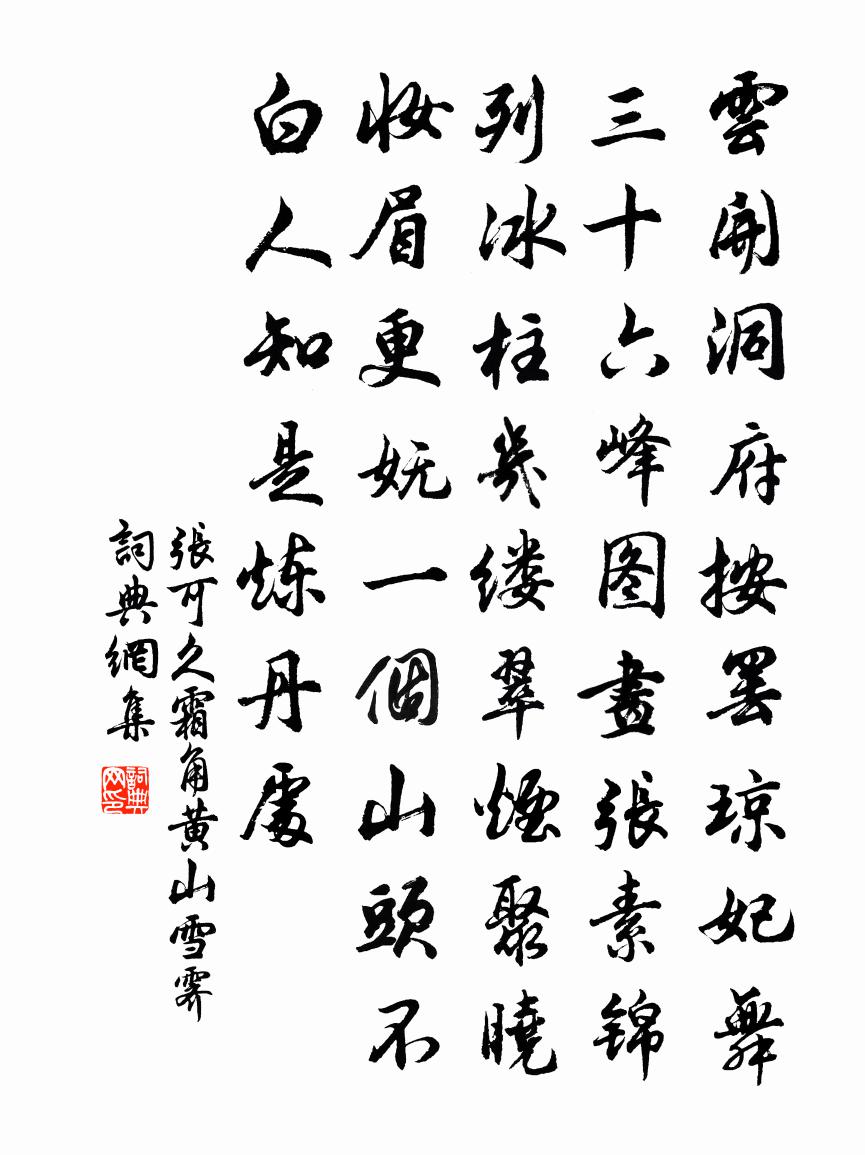 雲開洞府按罢琼妃舞
三十六峰图畫張素锦
列冰柱幾缕翠煙聚曉
妆眉更妩一個山頭不
白人知是炼丹處
張可久霜角黄山雪霽
詞典網集
詞典网印